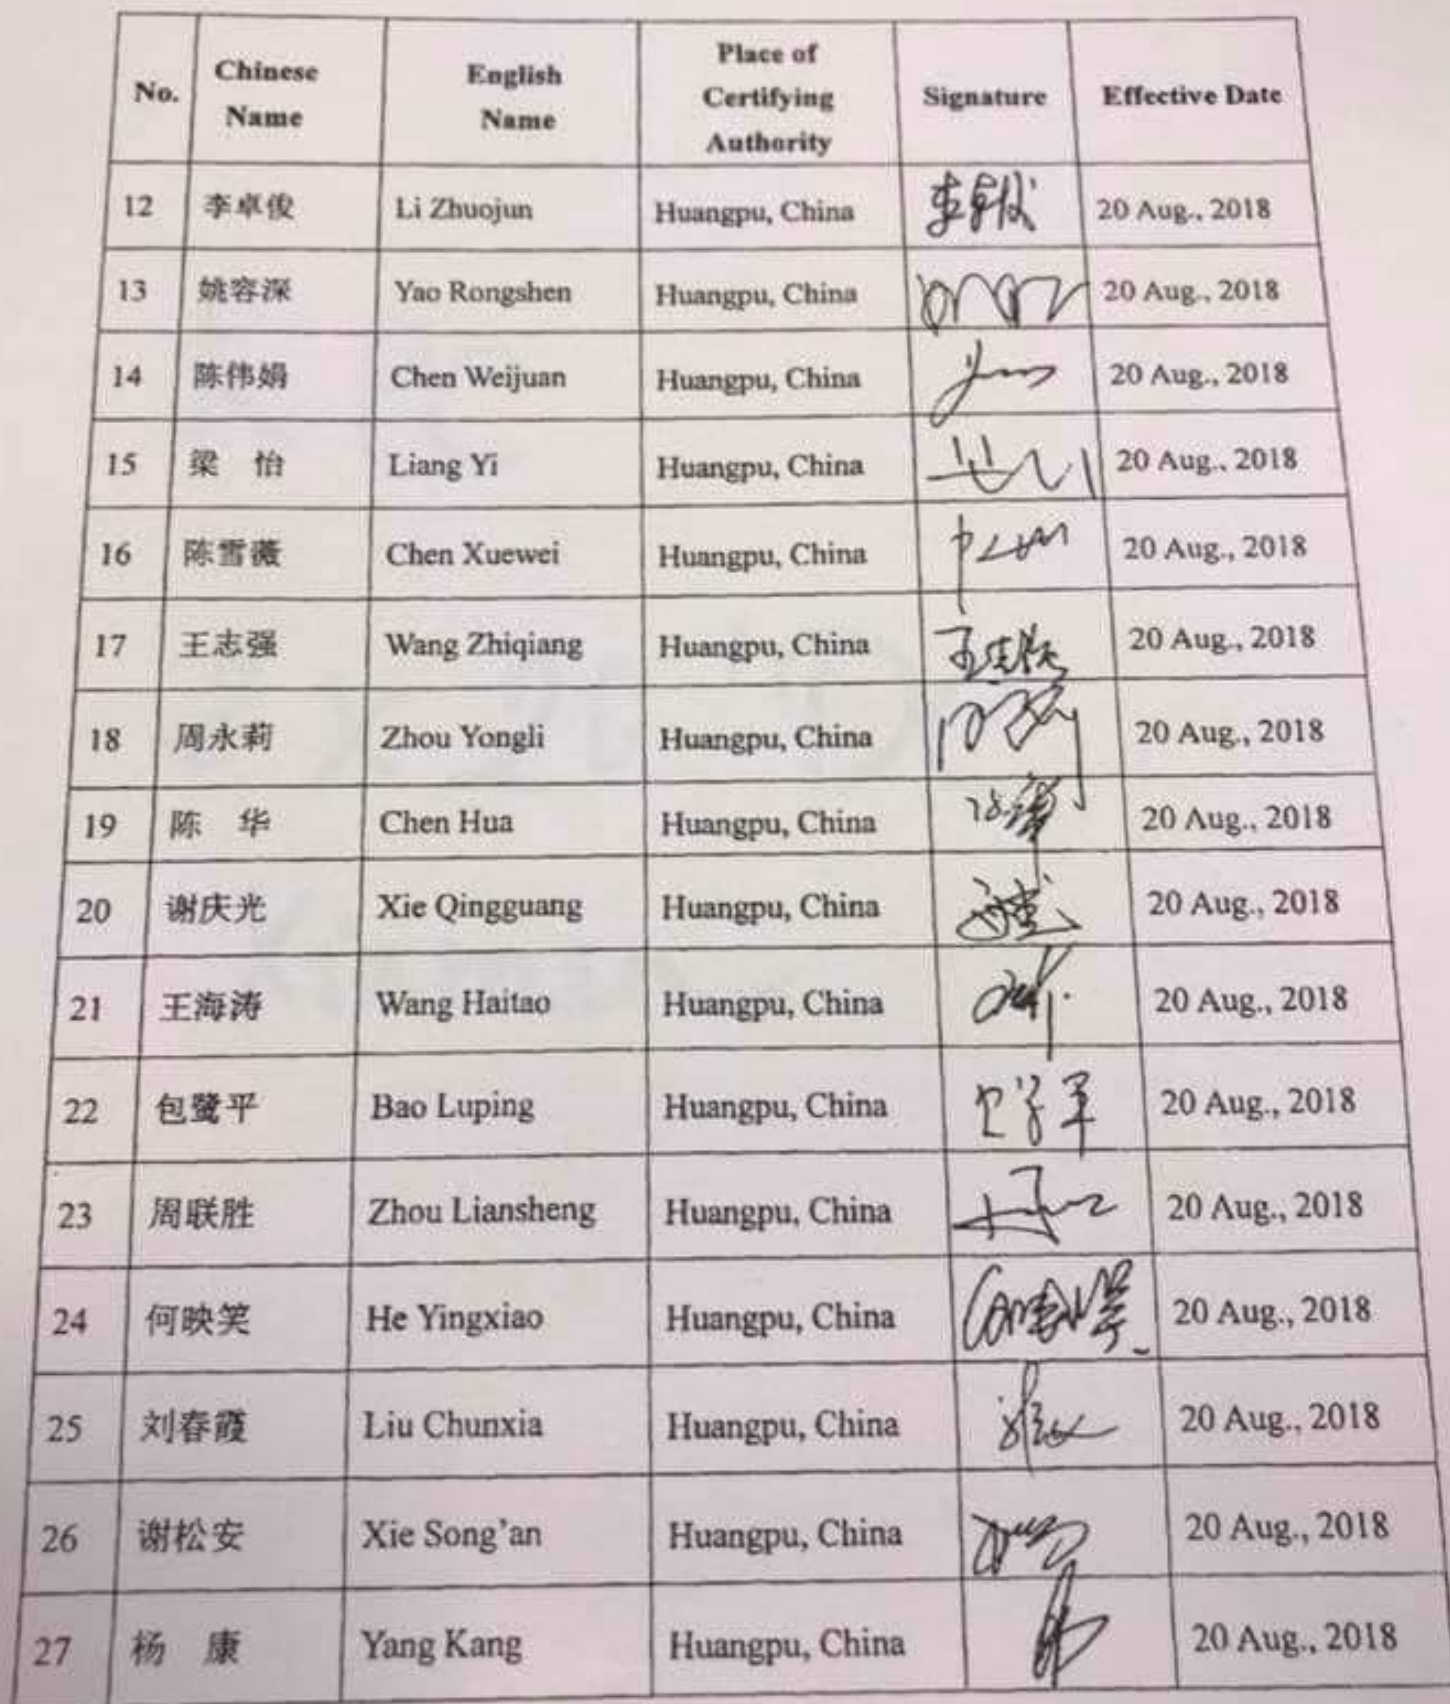 No. Chinese Name English Name Place of Certifying Authority Signature Effective Date
12 李卓俊 Li Zhuojun Huangpu, China 20 Aug., 2018
13 姚容深 Yao Rongshen Huangpu, China 20 Aug., 2018
14 陈伟娟 Chen Weijuan Huangpu, China 20 Aug., 2018
15 梁 怡 Liang Yi Huangpu, China 20 Aug., 2018
16 陈雪薇 Chen Xuewei Huangpu, China 20 Aug., 2018
17 王志强 Wang Zhiqiang Huangpu, China 20 Aug., 2018
18 周永莉 Zhou Yongli Huangpu, China 20 Aug., 2018
19 陈 华 Chen Hua Huangpu, China 20 Aug., 2018
20 谢庆光 Xie Qingguang Huangpu, China 20 Aug., 2018
21 王海涛 Wang Haitao Huangpu, China 20 Aug., 2018
22 包鹭平 Bao Luping Huangpu, China 20 Aug., 2018
23 周联胜 Zhou Liansheng Huangpu, China 20 Aug., 2018
24 何映笑 He Yingxiao Huangpu, China 20 Aug., 2018
25 刘春霞 Liu Chunxia Huangpu, China 20 Aug., 2018
26 谢松安 Xie Song'an Huangpu, China 20 Aug., 2018
27 杨 康 Yang Kang Huangpu, China 20 Aug., 2018